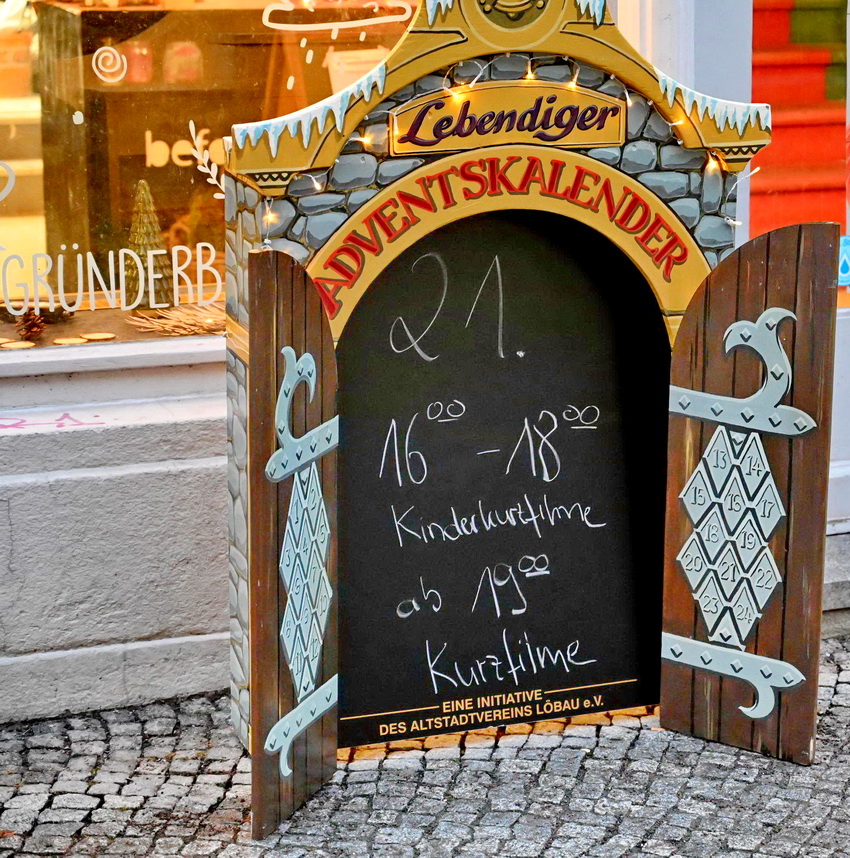 befo
GRÜNDERB
Lebendiger
ADVENTSKALENDER
21.
16⁰⁰ - 18⁰⁰
Kinderkurzfilme
ab 19⁰⁰
Kurzfilme
EINE INITIATIVE
DES ALTSTADTVEREINS LÖBAU e.V.
13 14
15 16 17
18 19
20 21 22
23 24